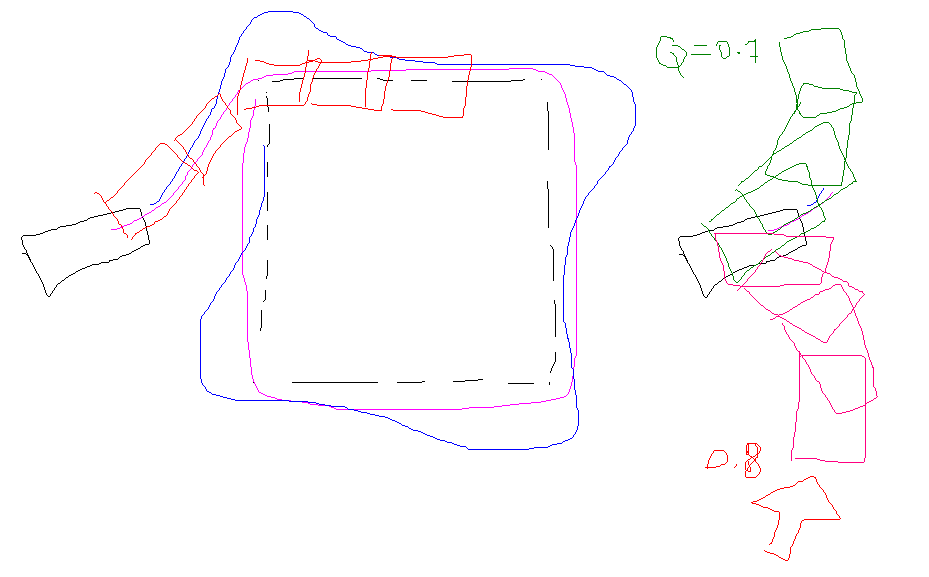 Q=0.7
0.8